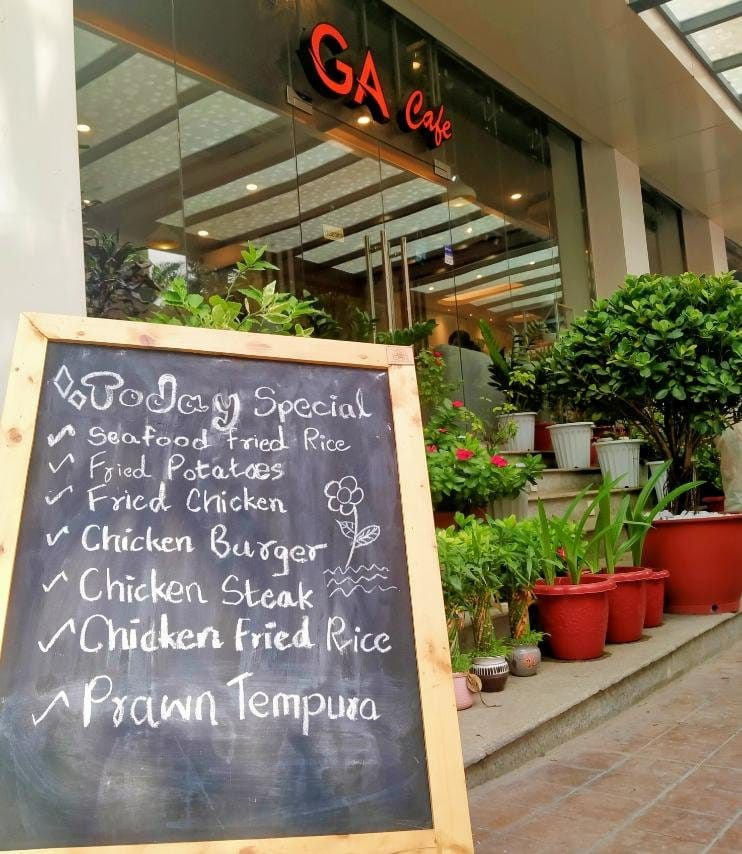 GA Cafe
Today Special
Seafood Fried Rice
Fried Potatoes
Fried Chicken
Chicken Burger
Chicken Steak
Chicken Fried Rice
Prawn Tempura